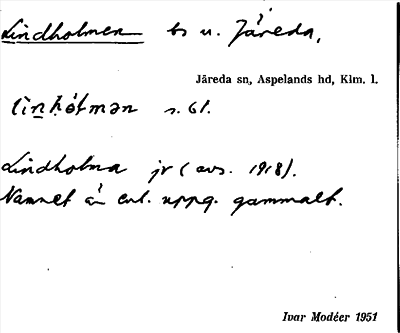 Lindholmen bs u. Järeda.
Järeda sn, Aspelands hd, Klm. l.
linhólmən s. 61.
Lindholma jr (avs. 1918).
Namnet är enl. uppg. gammalt.
Ivar Modéer 1951